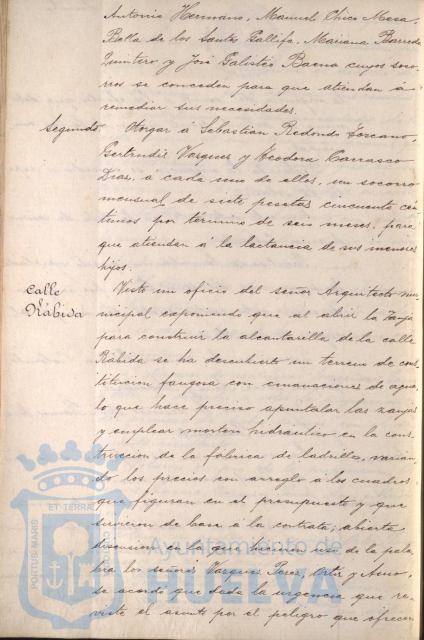 Antonia Hermano, Manuel Chico Mesa,
Balla de los Santos Gallifa, Mariana Barreda
Quintero y José Galisteo Baena cuyos soco-
rros se conceden para que atiendan á
remediar sus necesidades.
Segundo. Otorgar á Sebastian Redondo Toscano,
Gertrudis Vazquez y Teodora Carrasco
Dias, á cada uno de ellos, un socorro
mensual de siete pesetas cincuenta cén-
timos por término de seis meses, para
que atiendan á la lactancia de sus menores
hijos.
Calle
Rábida
Visto un oficio del señor Arquitecto mu-
nicipal exponiendo que al abrir la zanja
para construir la alcantarilla de la calle
Rábida se ha descubierto un terreno de cons-
titucion fangosa con emanaciones de agua,
lo que hace preciso apuntalar las zanjas
y emplear mortero hidraulico en la cons-
trucción de la fábrica de ladrillos, varian-
do los precios con arreglo á los cuadros
que figuran en el presupuesto y que
sirvieron de base á la contrata, abierta
discusion en la que hicieron uso de la pala-
bra los señores Vazquez Perez, y
se acordó que dada la urgencia que re-
viste el asunto por el peligro que ofrecen
PORTUS MARIS ET TERRAE
Ayuntamiento de
HUELVA